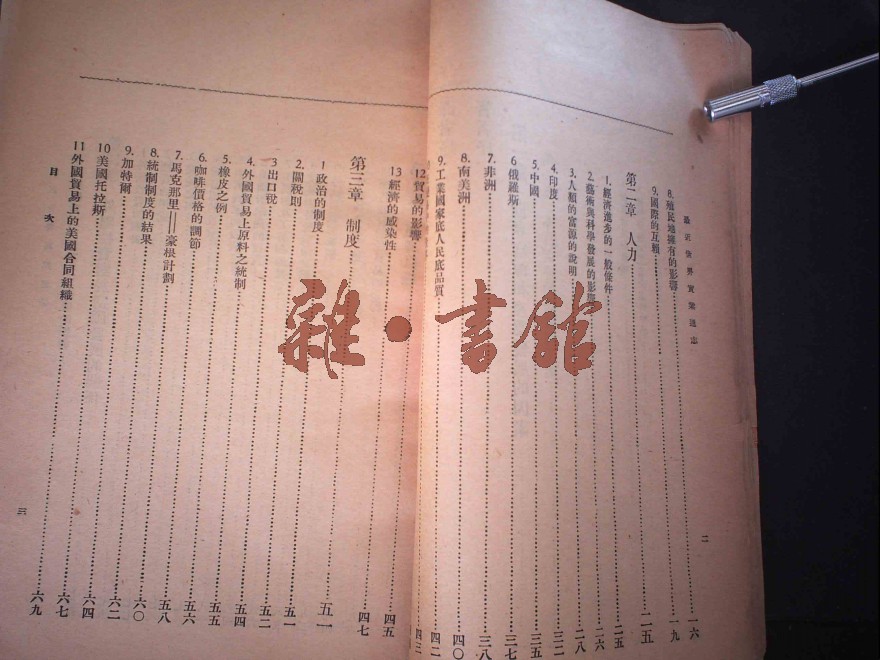 最近世界實業通志
二
8. 殖民地擁有的影響……一六
9. 國際的互賴……一九
第二章 人力……二五
1. 經濟進步的一般條件……二五
2. 藝術與科學發展的影響……二六
3. 人類的富源的說明……二八
4. 印度……三二
5. 中國……三五
6 俄羅斯……三七
7. 非洲……三八
8. 南美洲……四〇
9. 工業國家底人民底品質……四二
四三
12 貿易的影響……四五
13 經濟的感染性……四七
第三章 制度……五一
1 政治的制度……五一
2. 關稅則……五二
3 出口稅……五四
4. 外國貿易上原料之統制……五五
5. 橡皮之例……五六
6. 咖啡價格的調節……五八
7. 馬克那里——豪根計劃……六〇
8. 統制制度的結果……六二
9. 加特爾……六四
10 美國托拉斯……六七
11 外國貿易上的美國合同組織……六九
目次
三
雜·書館